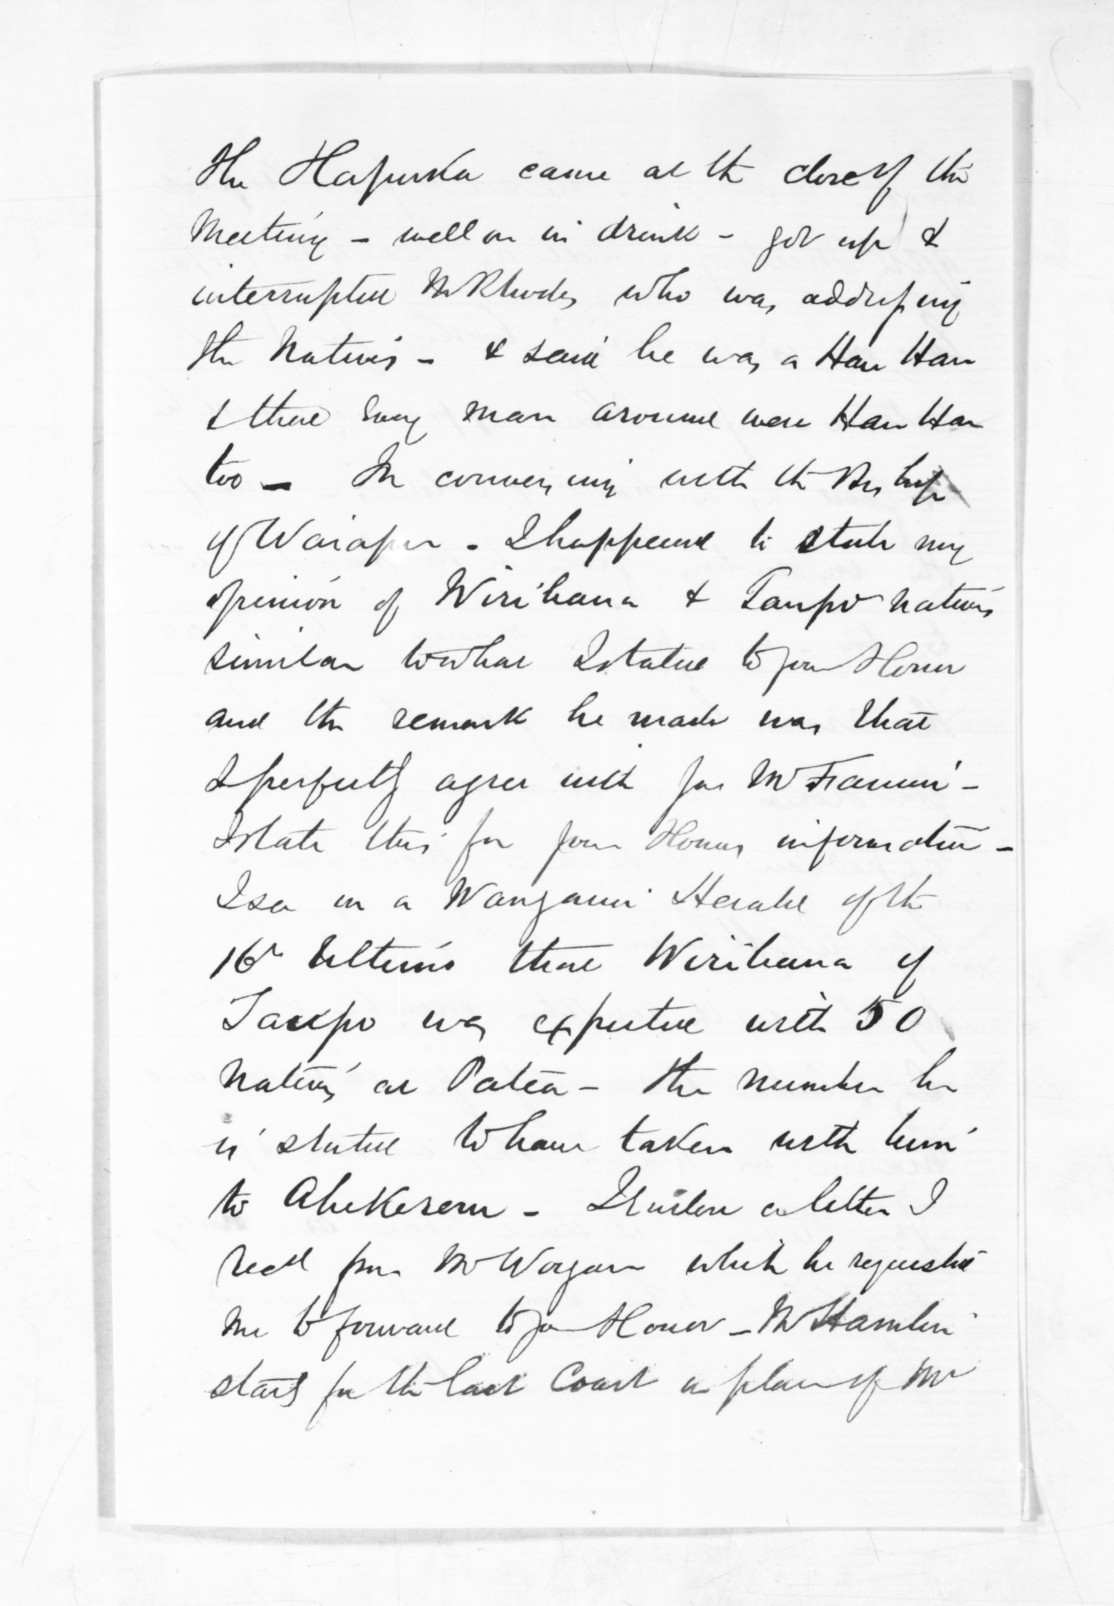 The Hapuka came at the close of the
Meeting - well on in drink - got up &
interrupted Mr Rhodes who was addressing
the Natives - & said he was a Hau Hau
& that every man around were Hau Hau
too - In conversing with the Bishop
of Waiapu - I happened to state my
opinion of Wirihana & Taupo natives
similar to what I stated to your Honor
and the remark he made was that
I perfectly agree with you Mr
I state this for your Honors information -
I see in a Wanganui Herald of the
16th Ultimo that Wirihana of
Taupo was expected with 50
Natives at Patea - the number he
is stated to have taken with him
to Ahikereru - I enclose a letter I
recd from Mr Worgan which he requested
me to forward to your Honor - Mr Hamlin
starts for the East Coast in place of Mr